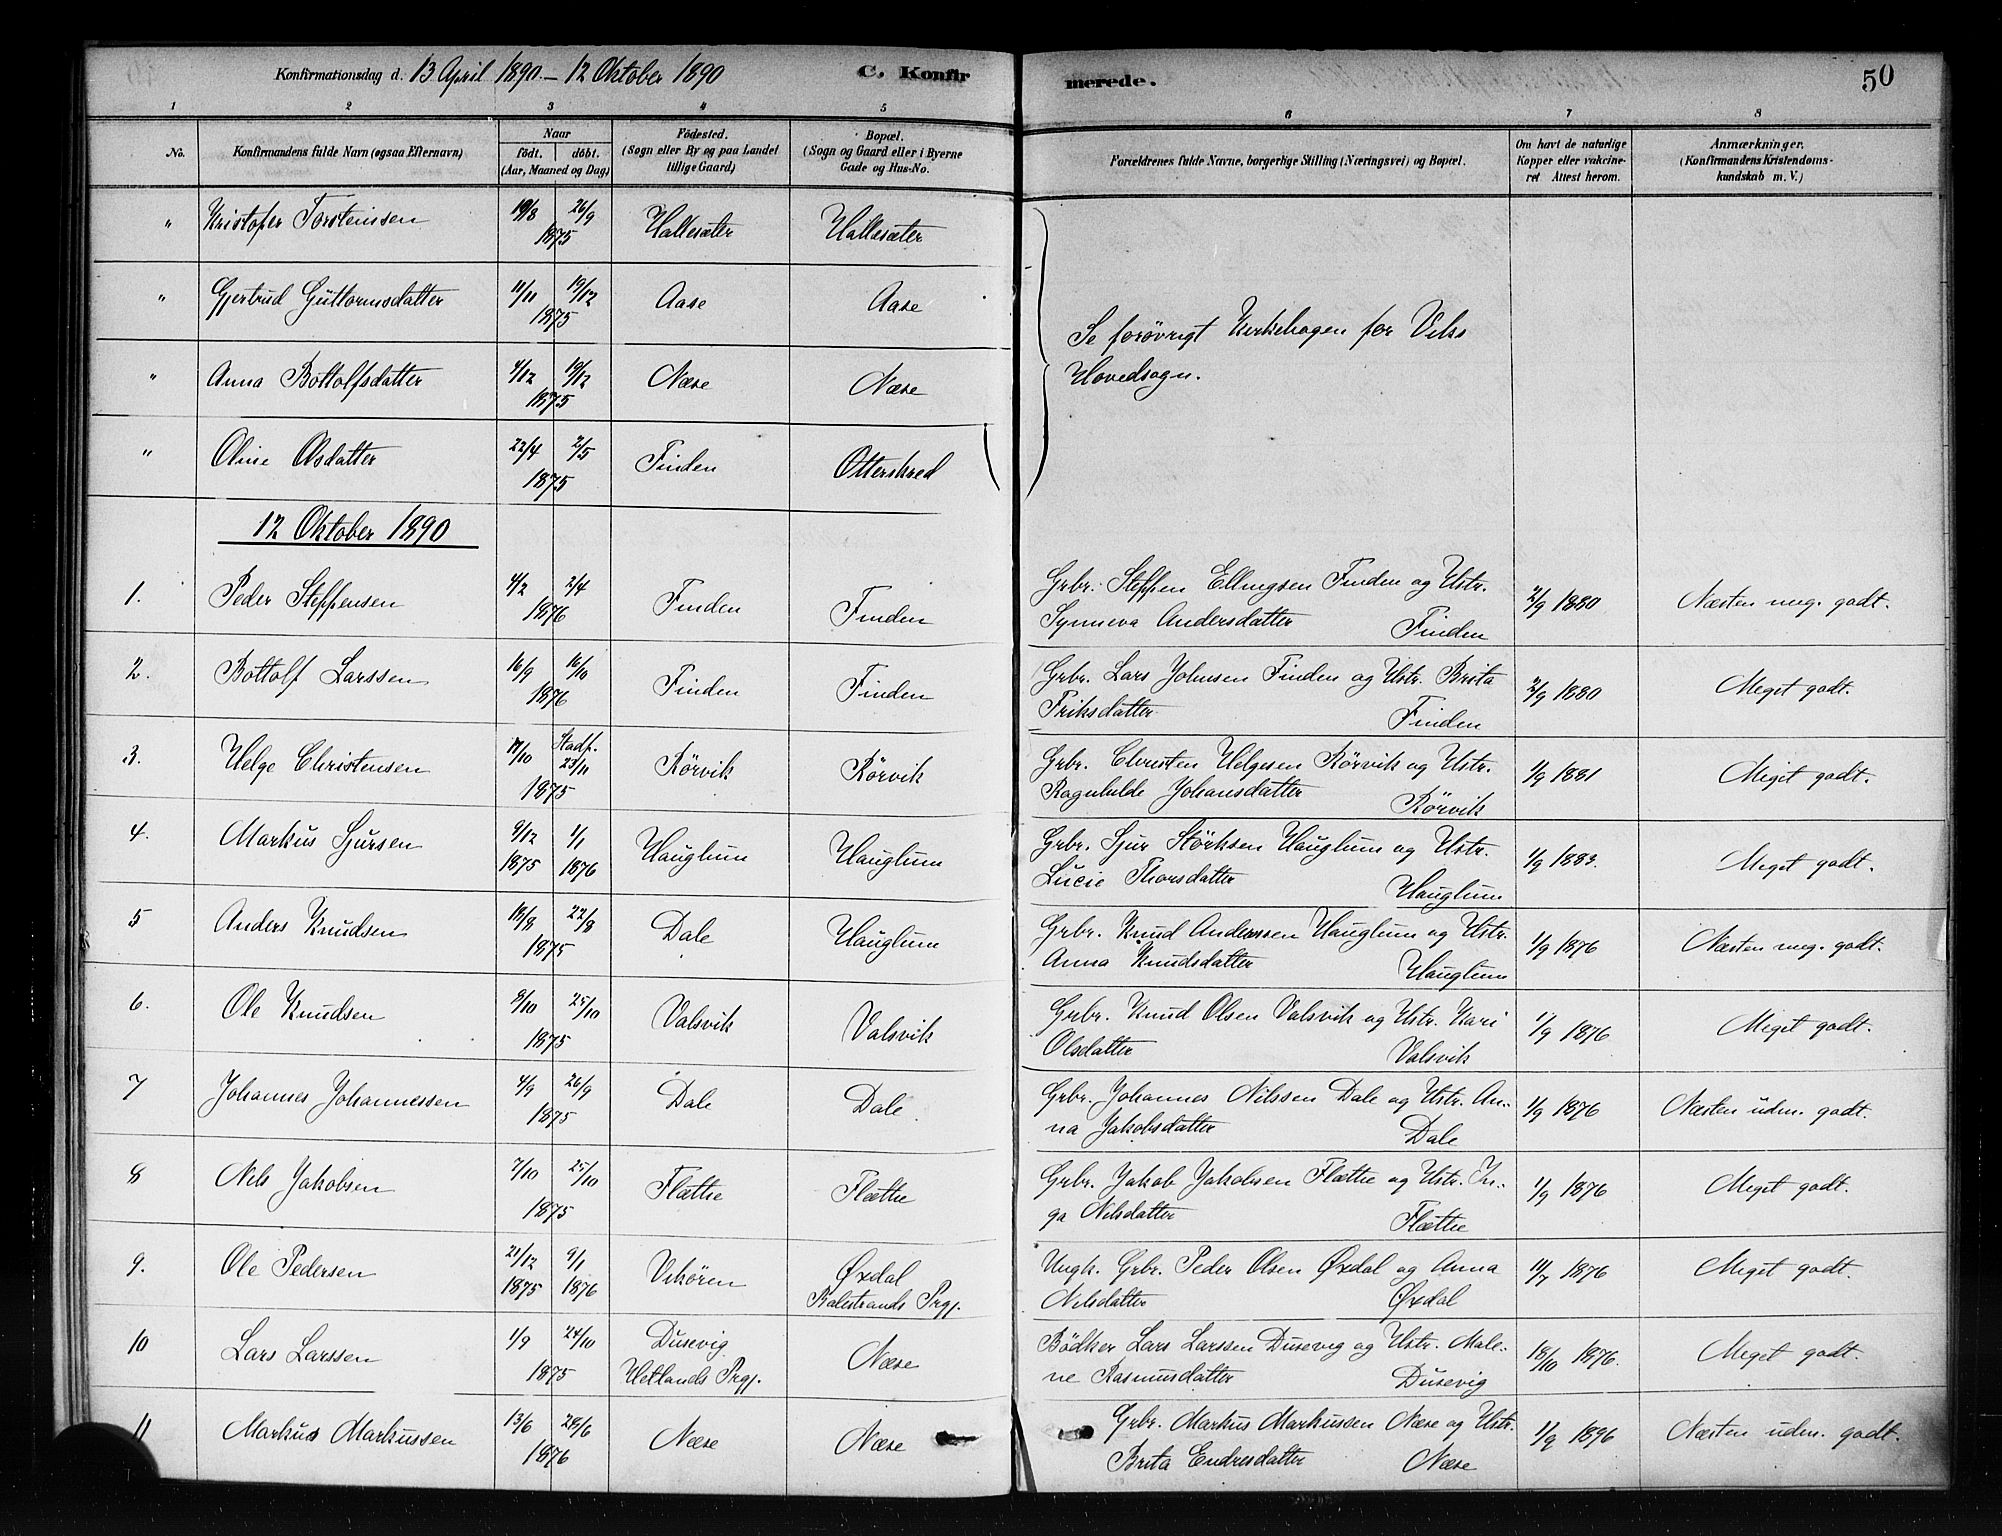 Konfirmationsdag d. 13 April 1890 – 12 Oktober 1890 C. Konfirmerede. 50
1 2 3 4 5 6 7 8
No.
Konfirmandens fulde Navn (ogsaa Efternavn)
Naar
født. døbt.
(Aar, Maaned og Dag)
Fødested.
(Sogn eller By og paa Landet
tillige Gaard)
Bopæl.
(Sogn og Gaard eller i Byerne
Gade og Hus-No.
Forældrenes fulde Navne, borgerlige Stilling (Næringsvei) og Bopæl.
Om havt de naturlige
Kopper eller vakcine-
ret Attest herom.
Anmærkninger.
(Konfirmandens Kristendoms-
kundskab m. V.)
" Kristofer Torstenssen 19/8 26/9 Hallesæter Hallesæter
1875
" Gjertrud Guttormsdatter 11/11 19/12 Aase Aase
1875
" Anna Bottolfsdatter 4/12 19/12 Næse Næse
1875
" Oline Olsdatter 22/4 2/5 Finden Otterskred
1875
Se forøvrigt Kirkebogen for Viks
Hovedsogn.
12 Oktober 1890
1. Peder Steffensen 4/2 2/4 Finden Finden Grbr. Steffen Ellingsen Finden og Hstr. 2/9 1880 Næsten meg. godt.
1876 Synneva Andersdatter Finden
2. Bottolf Larssen 16/9 16/10 Finden Finden Grbr. Lars Johnsen Finden og Hstr. Brita 2/9 1880 Meget godt.
1876 Friksdatter Finden
3. Helge Christensen 17/10 Stadf. 23/11 Rørvik Rørvik Grbr. Christen Helgesen Rørvik og Hstr. 1/9 1881 Meget godt.
1875 Ragnhilde Johansdatter Rørvik
4. Markus Sjursen 9/12 1/1 Hauglum Hauglum Grbr. Sjur Størksen Hauglum og Hstr. 1/9 1883. Meget godt.
1875 1876 Lucie Thorsdatter Hauglum
5 Anders Knudsen 18/8 22/8 Dale Hauglum Grbr. Knud Anderssen Hauglum og Hstr. 1/9 1876 Næsten meg. godt.
1875 Anna Knudsdatter Hauglum
6. Ole Knudsen 8/10 25/10 Valsvik Valsvik Grbr. Knud Olsen Valsvik og Hstr. Kari 1/9 1876 Meget godt.
1875 Olsdatter Valsvik
7 Johannes Johannessen 4/9 26/9 Dale Dale Grbr. Johannes Nilssen Dale og Hstr. An- 1/9 1876 Næsten udm. godt.
1875 na Jakobsdatter Dale
8 Nils Jakobsen 7/10 25/10 Flætte Flætte Grbr. Jakob Jakobsen Flætte og Hstr. In- 1/9 1876 Meget godt.
1875 ga Nilsdatter Flætte
9. Ole Pedersen 21/12 9/1 Vikøren Øxdal Ungk. Grbr. Peder Olsen Øxdal og Anna 11/7 1876 Meget godt.
1875 1876 Balestrands Prgj. Nilsdatter Øxdal
10 Lars Larssen 1/9 24/10 Dusevig Næse Bødker Lars Larssen Dusevig og Hstr. Male- 18/10 1876. Meget godt.
1875 Hetlands Prgj. ne Rasmusdatter Dusevig
11 Markus Markussen 13/6 24/6 Næse Næse Grbr. Markus Markussen Næse og Hstr. 1/9 1896 Næsten udm. godt.
1876 Brita Endresdatter Næse